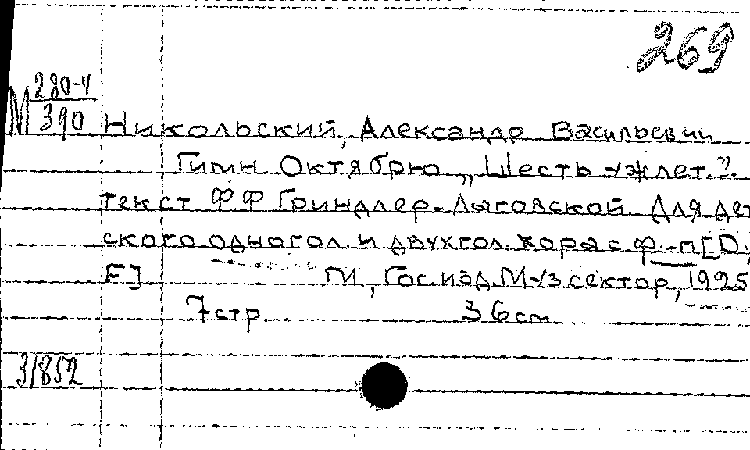 269
М 280-4
390
Никольский, Александр Васильевич
Гимн Октябрю „Шесть уж лет.".
текст ФФ Гриндлер-Лыговской Для дет
ского одногол и двухгол. хора с ф.-п [D,
F] М, Гос. изд. Муз сектор, 1925
7 стр 36 см
31852